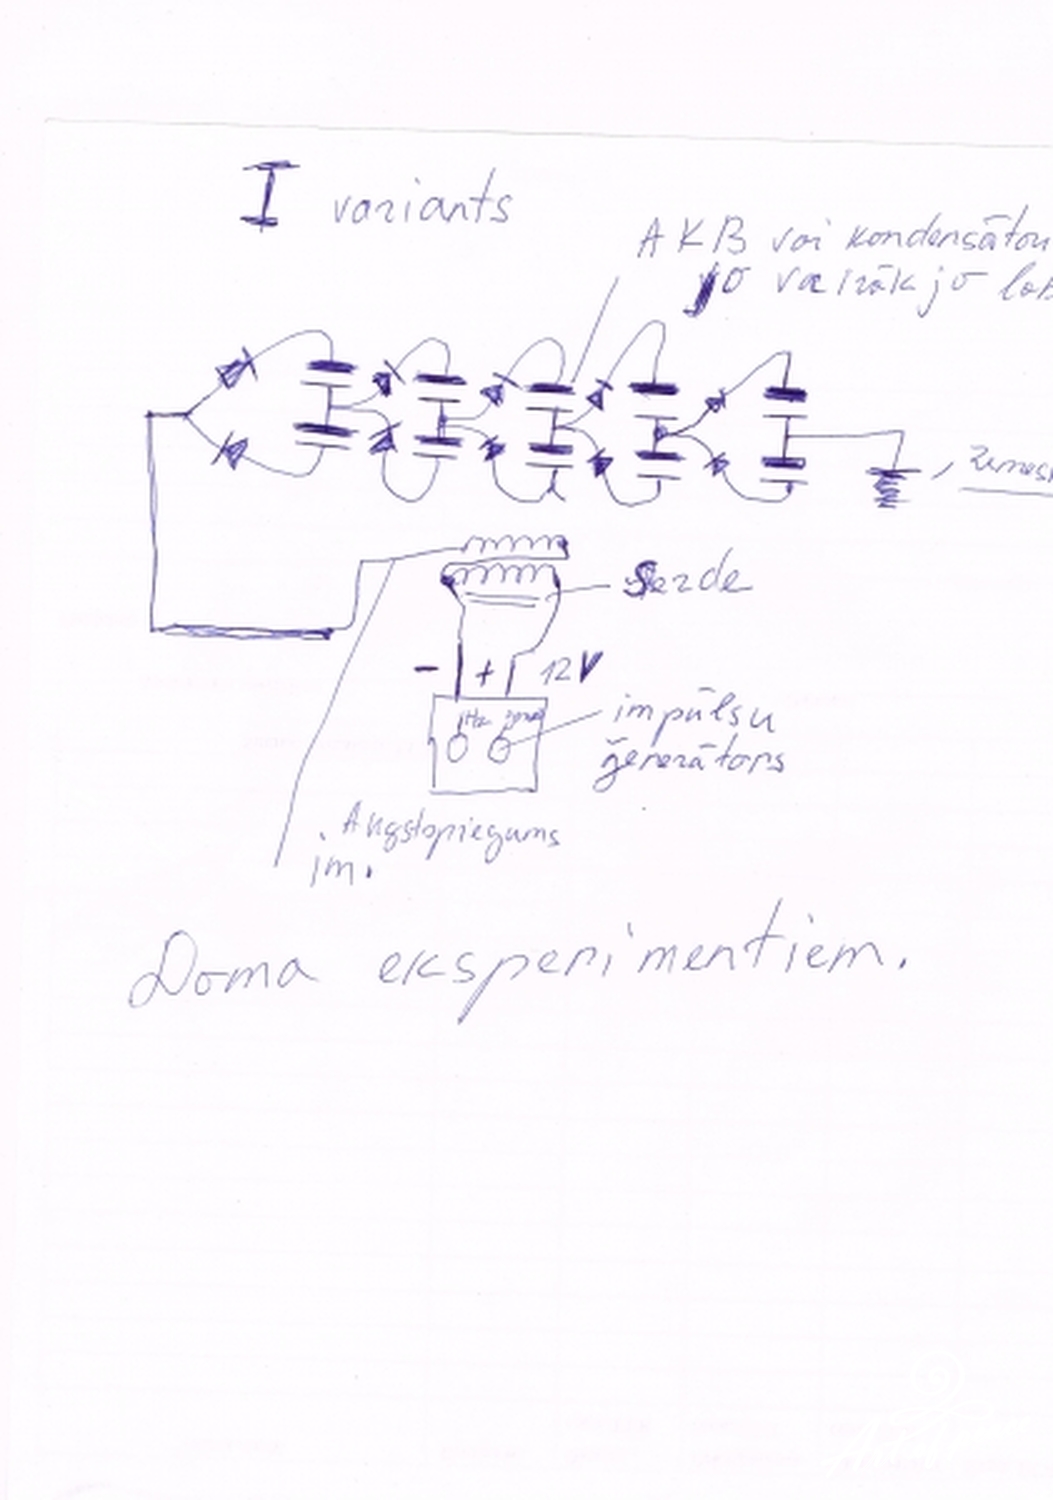 I variants
AKB vai kondensātor
jo vairāk jo lab
Zemes
Serde
- + 12V
Hz
impūlsu
ģenerātors
Augstspiegums
im.
Doma eksperimentiem.